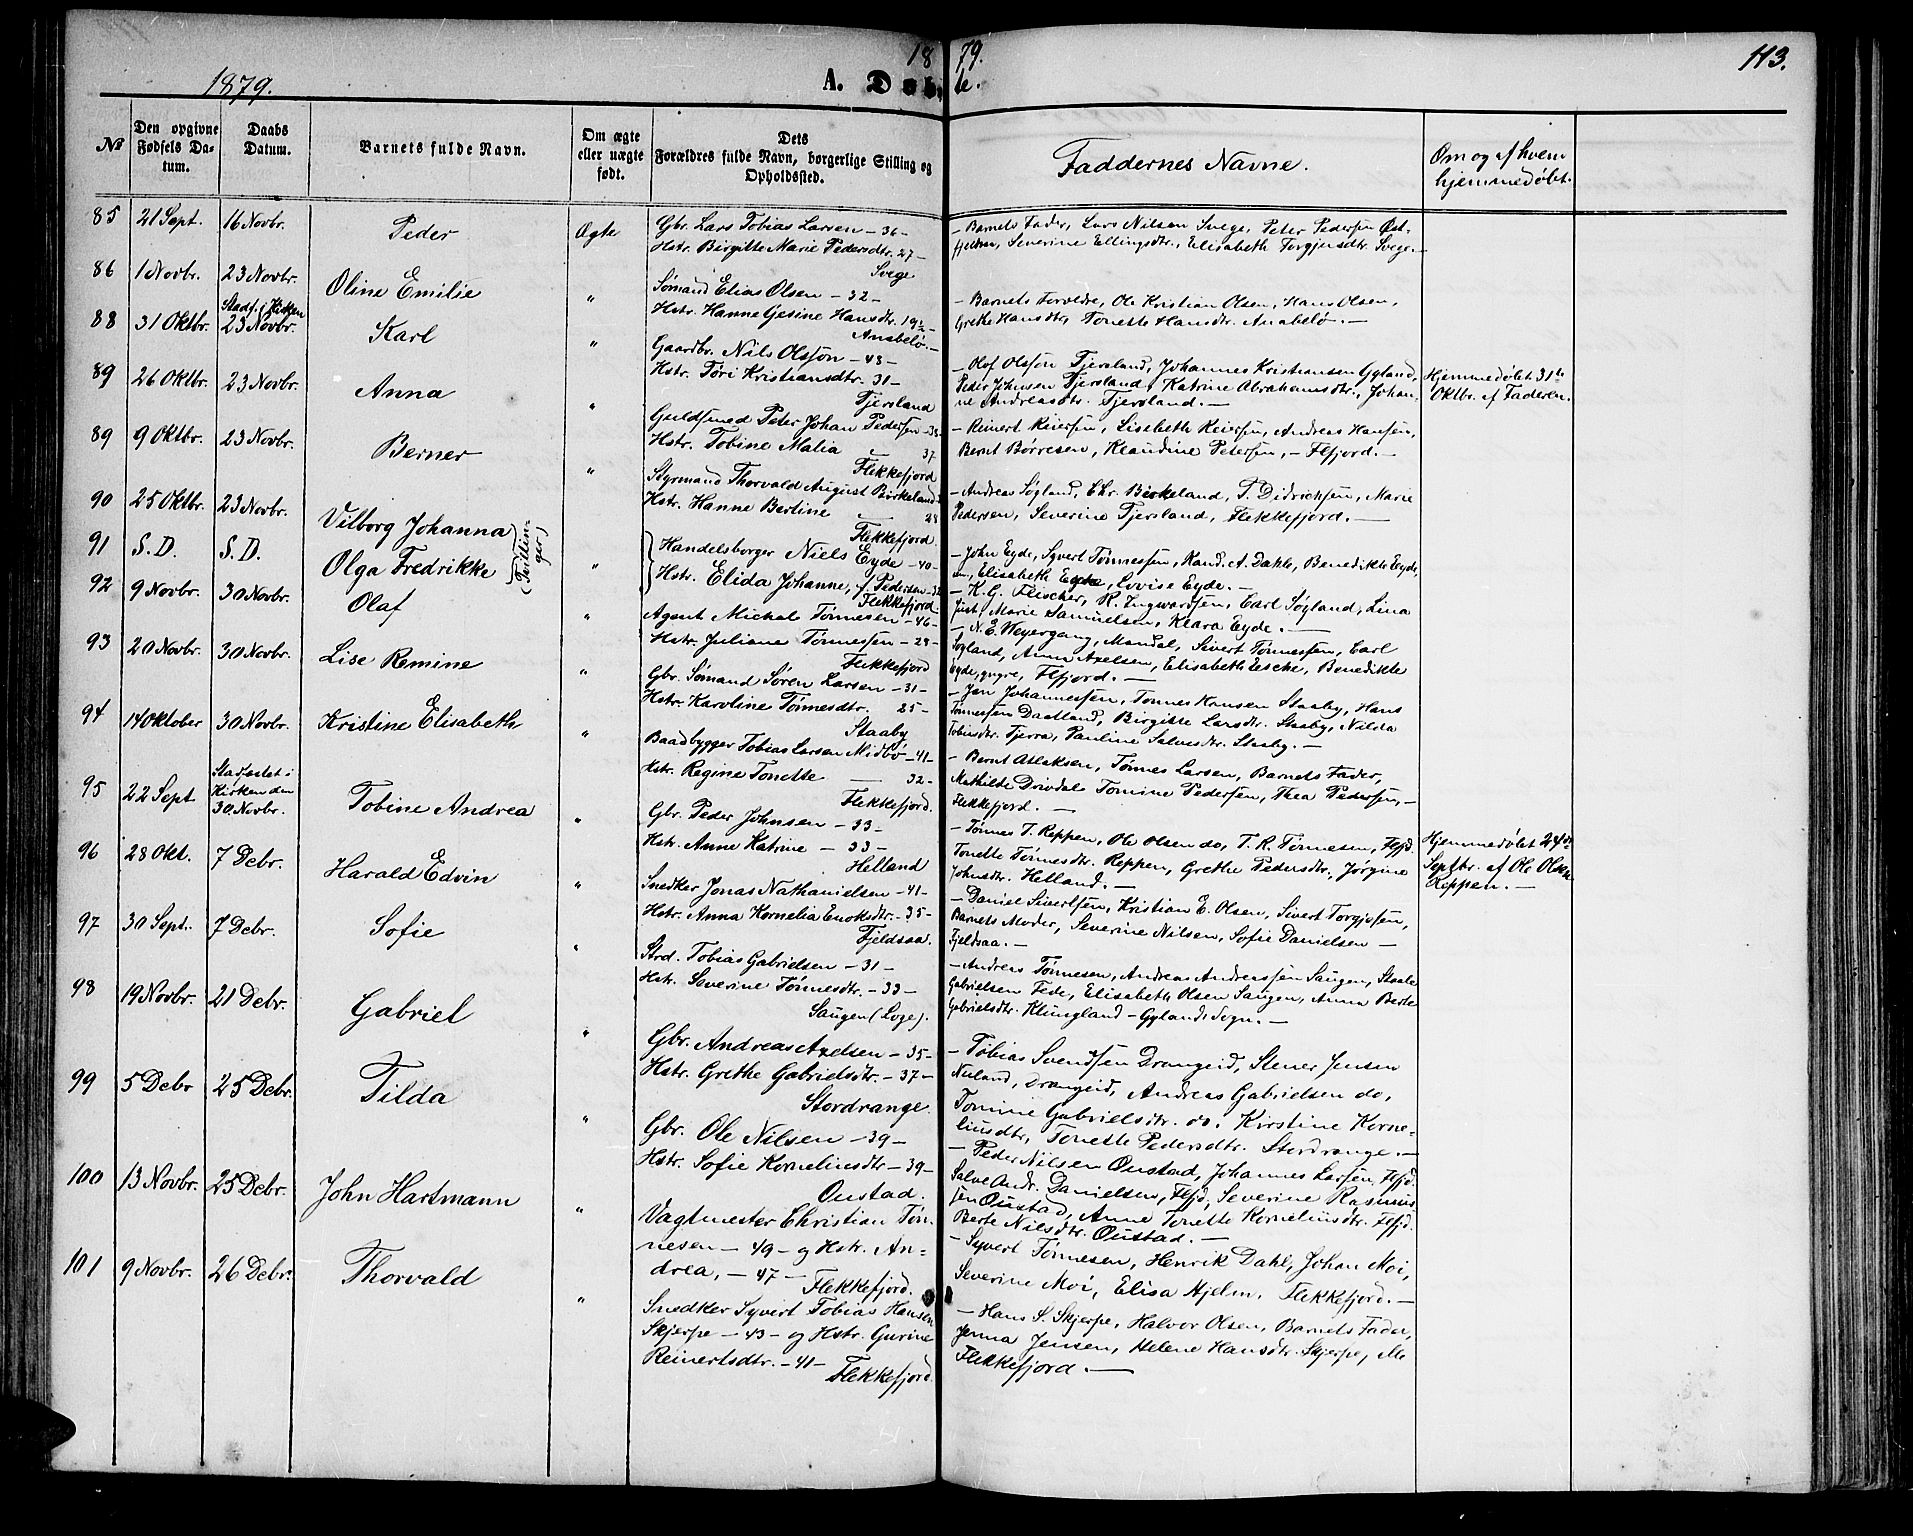 1879.
1879.
113.
A. Døbte.
№
Den opgivne Fødsels Datum.
Daabs Datum.
Barnets fulde Navn.
Om ægte eller uægte født.
Dets Forældres fulde Navn, borgerlige Stilling og Opholdssted.
Faddernes Navne.
Om og af hvem hjemmedøbt.
85 21 Sept. 16 Novbr. Peder Ægte
Gbr. Lars Tobias Larsen - 36 -
Hstr. Birgitte Marie Pedersdtr. 27 -
Svege
- Barnets Fader, Lars Nilsen Svege, Peter Pedersen Øst-
fjelken, Severine Ellingsdtr., Elisabeth Torgjusdtr. Svege. -
86 1 Novbr. 23 Novbr. Oline Emilie "
Sømand Elias Olsen - 32 -
Hstr. Hanne Gesine Hansdtr. 19½ -
Anabelø. -
- Barnets Forældre, Ole Kristian Olsen, Hans Olsen,
Grethe Hansdtr, Tonette Hansdtr. Anabelø. -
88 31 Oktbr. Stadf. i Kirken 23 Novbr. Karl "
Gaardbr. Nils Olsson - 43 -
Hstr. Tøri Kristiansdtr. 31 -
Tjersland
- Olof Olsson Tjersland, Johannes Kristiansen Gyland,
Peder Johnsen Tjersland, Katrine Abrahamsdtr., Johan-
ne Andreasdtr. Tjersland. -
Hjemmedøbt 31te
Oktbr. af Faderen.
89 26 Oktbr. 23 Novbr. Anna "
Guldsmed Peter Johan Pedersen - 38 -
Hstr. Tobine Malia 37
Flekkefjord
- Reinert Reiersen, Lisebeth Reiersen, Andreas Hansen,
Bernt Børresen, Klaudine Petersen, - Flfjord. -
89 9 Oktbr. 23 Novbr. Berner "
Styrmand Thorvald August Birkeland
Hstr. Hanne Bertine 28
Flekkefjord.
- Andreas Søgland, Chr. Birkeland, T. Didrichsen, Marie
Pedersen, Severine Tjersland, Flekkefjord. -
90 25 Oktbr. 23 Novbr. Vilborg Johanna
91 S.D. S.D. Olga Fredrikke (Tvillinger) "
Handelsborger Niels Eyde - 40 -
Hstr. Elida Johanne, f. Pedersen - 32
Flekkefjord.
- John Eyde, Syvert Tønnessen, Kand. A. Dahle, Benedikte Eyde,
Elisabeth Eyde, Lovise Eyde. -
- H. G. Fleischer, R. Ingwardsen, Carl Søgland, Lina
Just, Marie Samuelsen, Klara Eyde. -
92 9 Novbr. 30 Novbr. Olaf "
Agent Michal Tønnesen - 46 -
Hstr. Juliane Tønnessen - 28 -
Flekkefjord
- N. E. Weyergang, Mandal, Sivert Tønnessen, Carl
Søgland, Anna Axelsen, Elisabeth Eescke, Benedikte
Eyde, yngre, Flfjord. -
93 20 Novbr. 30 Novbr. Lise Remine "
Gbr. Sømand Søren Larsen - 31 -
Hstr. Karoline Tønnesdtr. 25 -
Staaby
- Jan Johannessen, Tønnes Hansen Staaby, Hans
Tønnessen Daatland, Birgitte Larsdtr. Staaby, Nilda
Tobiasdtr. Tjerra, Pauline Salvesdtr. Staaby. -
94 14 Oktober 30 Novbr. Kristine Elisabeth "
Baadbygger Tobias Larsen Midbø - 41 -
Hstr. Regine Tonette 32 -
Flekkefjord.
- Bernt Atlaksen, Tønnes Larsen, Barnets Fader,
Mathilde Drivdal Tomine Pedersen, Thea Pedersen, -
Flekkefjord. -
95 22 Sept Stadfæstet i Kirken den 30 Novbr. Tobine Andrea "
Gbr. Peder Johnsen - 33 -
Hstr. Anne Katrine - 33 -
Helland
- Tønnes T. Reppen, Ole Olsen do, T. R. Tønnesen, Flfjd.
Tonette Tønnesdtr. Reppen, Grethe Pedersdtr., Jørgine
Johnsdtr. Helland. -
Hjemmedøbt 24de
Septbr. af Ole Olsen
Reppen. -
96 28 Okt. 7 Debr. Harald Edvin "
Snedker Jonas Nathanielsen - 41 -
Hstr. Anna Kornelia Enoksdtr. - 35 -
Fjeldsaa.
- Daniel Sivertsen, Kristian E. Olsen, Sivert Torgjusen,
Barnets Moder, Severine Nilsen, Sofie Danielsen -
Fjeldsaa. -
97 30 Sept. 7 Debr. Sofie "
Strd. Tobias Gabrielsen - 31 -
Hstr. Severine Tønnesdtr. - 33 -
Saugen (Loge).
- Andreas Tønnesen, Andreas Andreassen Saugen, Staale
Gabrielsen Fede, Elisabeth Olsen Saugen, Anna Berte
Gabrielsdtr. Klungland - Gylands Sogn. -
98 19 Novbr. 21 Debr. Gabriel "
Gbr. Andreas Axelsen - 35 -
Hstr. Grethe Gabrielsdtr. - 37 -
Stordrange.
- Tobias Svendsen Drangeid, Stener Jensen
Nuland, Drangeid, Andreas Gabrielsen do,
Tomine Gabrielsdtr. do. Kirstine Korne-
liusdtr, Tonette Pedersdtr. Stordrange. -
99 5 Debr 25 Debr. Tilda "
Gbr. Ole Nilsen - 39 -
Hstr. Sofie Korneliusdtr - 39 -
Oustad.
- Peder Nilsen Oustad, Johannes Larsen, Flfjd.
Salve Andr. Danielsen, Flfjd, Severine Rasmus-
sen Oustad, Anne Tonette Korneliusdtr. Flfjd.
Berte Nilsdtr. Oustad. -
100 13 Novbr. 25 Debr. John Hartmann "
Vagtmester Christian Tøn-
nesen - 49 - og Hstr. An-
drea, - 47 -
Flekkefjord.
- Syvert Tønnesen, Henrik Dahl, Johan Moi,
Severine Moi, Elisa Hjelm, Flekkefjord. -
101 9 Novbr. 26 Debr. Thorvald "
Snedker Syvert Tobias Hansen
Skjerpe - 43 - og Hstr. Gurine
Reinertsdtr. - 41 -
Flekkefjord
- Hans S. Skjerpe, Halvor Olsen, Barnets Fader,
Jenna Jensen, Helene Hansdtr. Skjerpe,
Flekkefjord. -